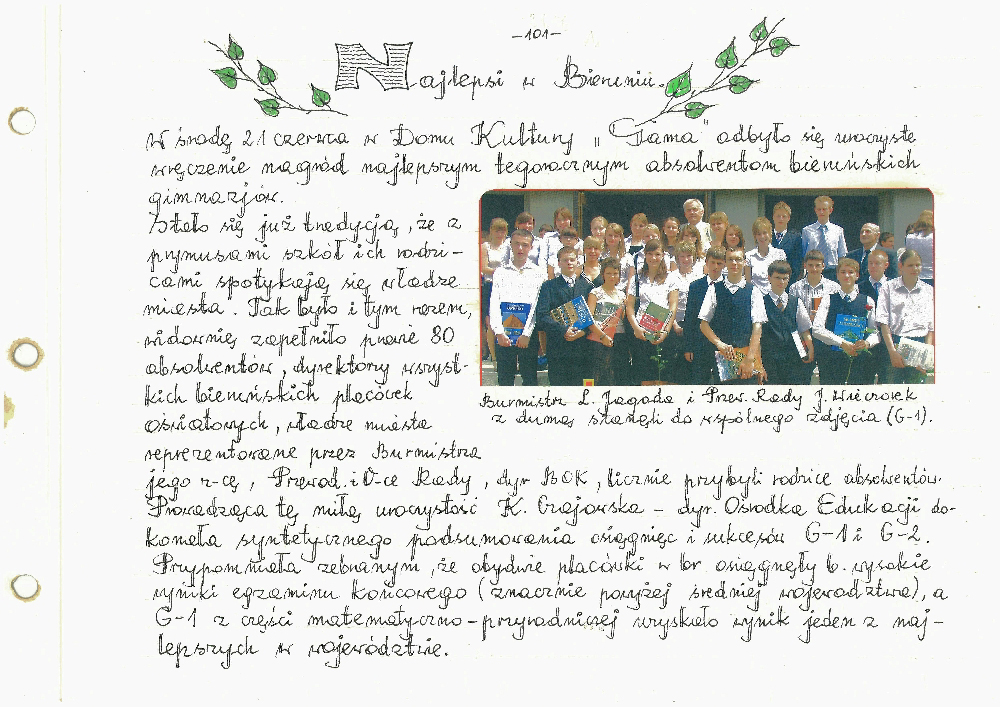 -101-
Najlepsi w Bieruniu.
W środę 21 czerwca w Domu Kultury „Gama" odbyło się uroczyste
wręczenie nagród najlepszym tegorocznym absolwentom bieruńskich
gimnazjów.
Stało się już tradycją, że z
prymusami szkół i ich rodzi-
cami spotykają się władze
miasta. Tak było i tym razem,
widownię zapełniło prawie 80
absolwentów, dyrektorzy wszyst-
kich bieruńskich placówek
oświatowych, władze miasta
reprezentowane przez Burmistrza
jego z-cę, Przewod. i V-ce Rady, dyr BOK, licznie przybyli rodzice absolwentów.
Prowadząca tę miłą uroczystość K. Czajowska - dyr. Ośrodka Edukacji do-
konała syntetycznego podsumowania osiągnięć i sukcesów G-1 i G-2.
Przypomniała zebranym, że obydwie placówki w br osiągnęły b. wysokie
wyniki egzaminu końcowego (znacznie powyżej średniej województwa), a
G-1 z części matematyczno-przyrodniczej uzyskało wynik jeden z naj-
lepszych w województwie.
Burmistrz L. Jagoda i Przew. Rady J. Wieczorek
z dumą stanęli do wspólnego zdjęcia (G-1).